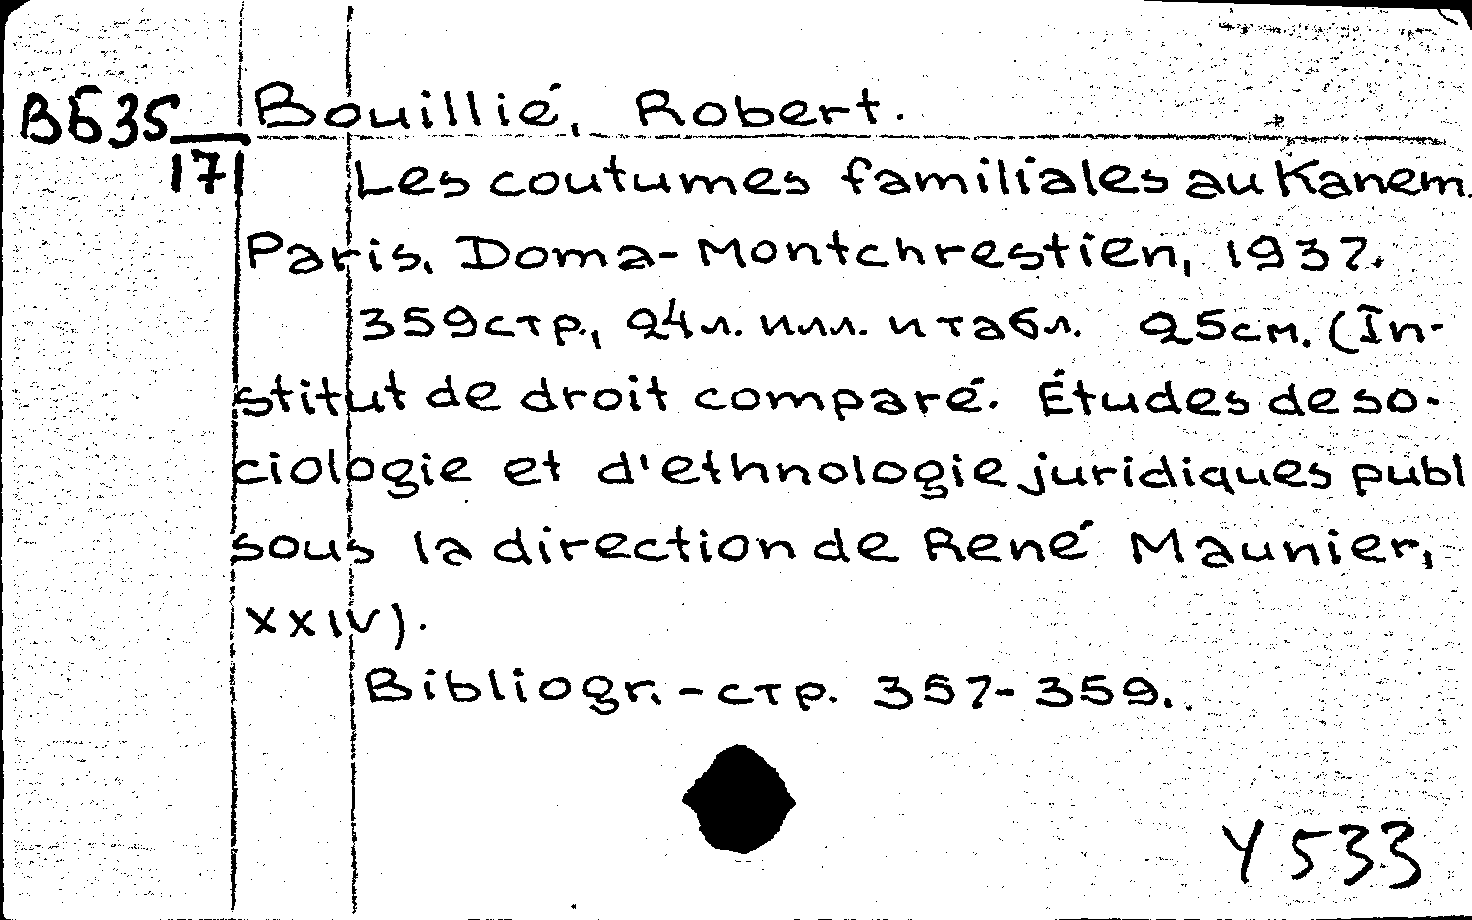 Bouillié, Robert.
ВБ35
17
Les coutumes familiales au Kanem.
Paris, Doma-Montchrestien, 1937.
359стр., 24л. илл. и табл. 25см. (In-
stitut de droit comparé. Études de so-
ciologie et d'ethnologie juridiques publ
sous la direction de René Maunier,
XXIV).
Bibliogr. - стр. 357-359.
У 533